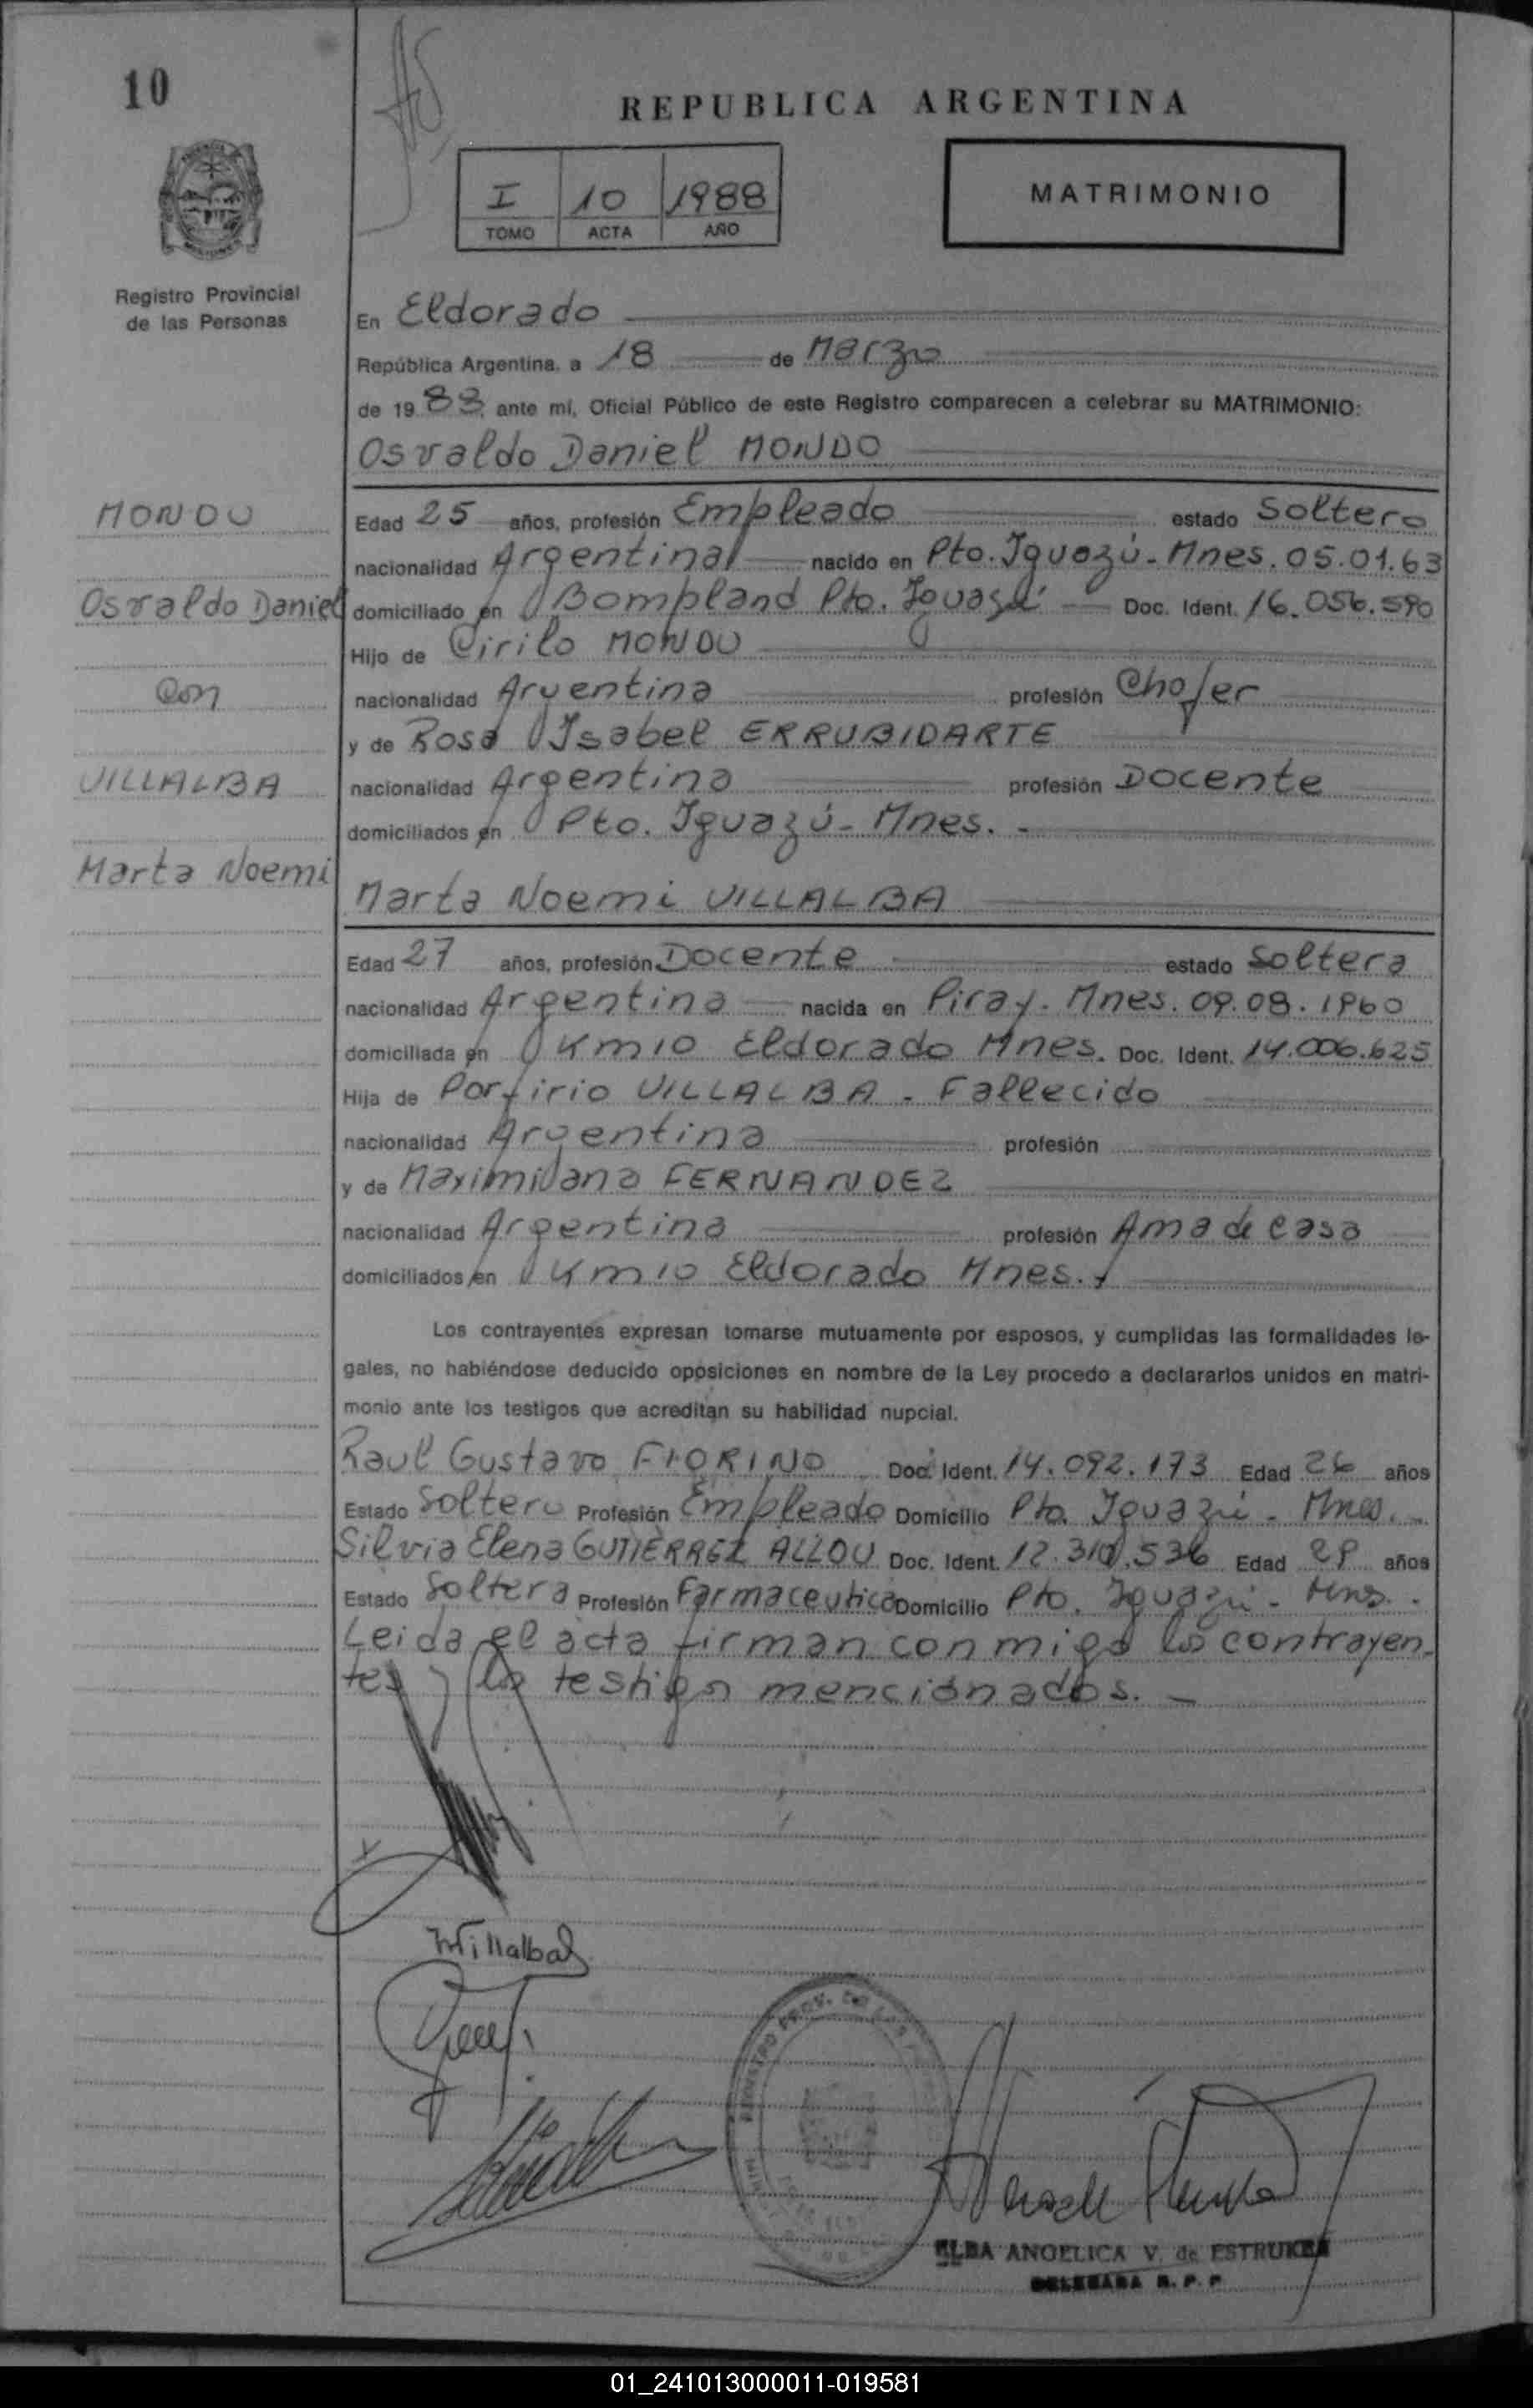 10
REPUBLICA ARGENTINA
I 10 1988
TOMO ACTA AÑO
MATRIMONIO
Registro Provincial
de las Personas
En Eldorado
República Argentina, a 18 de Marzo
de 1988, ante mí, Oficial Público de este Registro comparecen a celebrar su MATRIMONIO:
Osvaldo Daniel MONDO
MONDO
Osvaldo Daniel
con
VILLALBA
Marta Noemi
Edad 25 años, profesión Empleado estado Soltero
nacionalidad Argentina nacido en Pto. Iguazú - Mnes. 05.01.63
domiciliado en Bompland Pto. Iguazú Doc. Ident. 16.056.590
Hijo de Cirilo MONDO
nacionalidad Argentina profesión Chofer
y de Rosa Isabel ERRUBIDARTE
nacionalidad Argentina profesión Docente
domiciliados en Pto. Iguazú - Mnes. -
Marta Noemi VILLALBA
Edad 27 años, profesión Docente estado Soltera
nacionalidad Argentina nacida en Piray - Mnes. 09.08.1960
domiciliada en Km 10 Eldorado Mnes. Doc. Ident. 14.006.625
Hija de Porfirio VILLALBA - Fallecido
nacionalidad Argentina profesión
y de Maximiliana FERNANDEZ
nacionalidad Argentina profesión Ama de casa
domiciliados en Km 10 Eldorado Mnes.
Los contrayentes expresan tomarse mutuamente por esposos, y cumplidas las formalidades le-
gales, no habiéndose deducido oposiciones en nombre de la Ley procedo a declararlos unidos en matri-
monio ante los testigos que acreditan su habilidad nupcial.
Raul Gustavo FIORINO Doc. Ident. 14.092.173 Edad 26 años
Estado Soltero Profesión Empleado Domicilio Pto. Iguazú - Mnes. -
Silvia Elena GUTIERREZ ALLOU Doc. Ident. 12.310.536 Edad 29 años
Estado Soltera Profesión Farmaceutica Domicilio Pto. Iguazú - Mns. -
Leida el acta firman conmigo los contrayen-
tes y los testigos mencionados. -
Villalba
ELBA ANGELICA V. de ESTRUKEL
DELEGADA R. P. P.
01_241013000011-019581